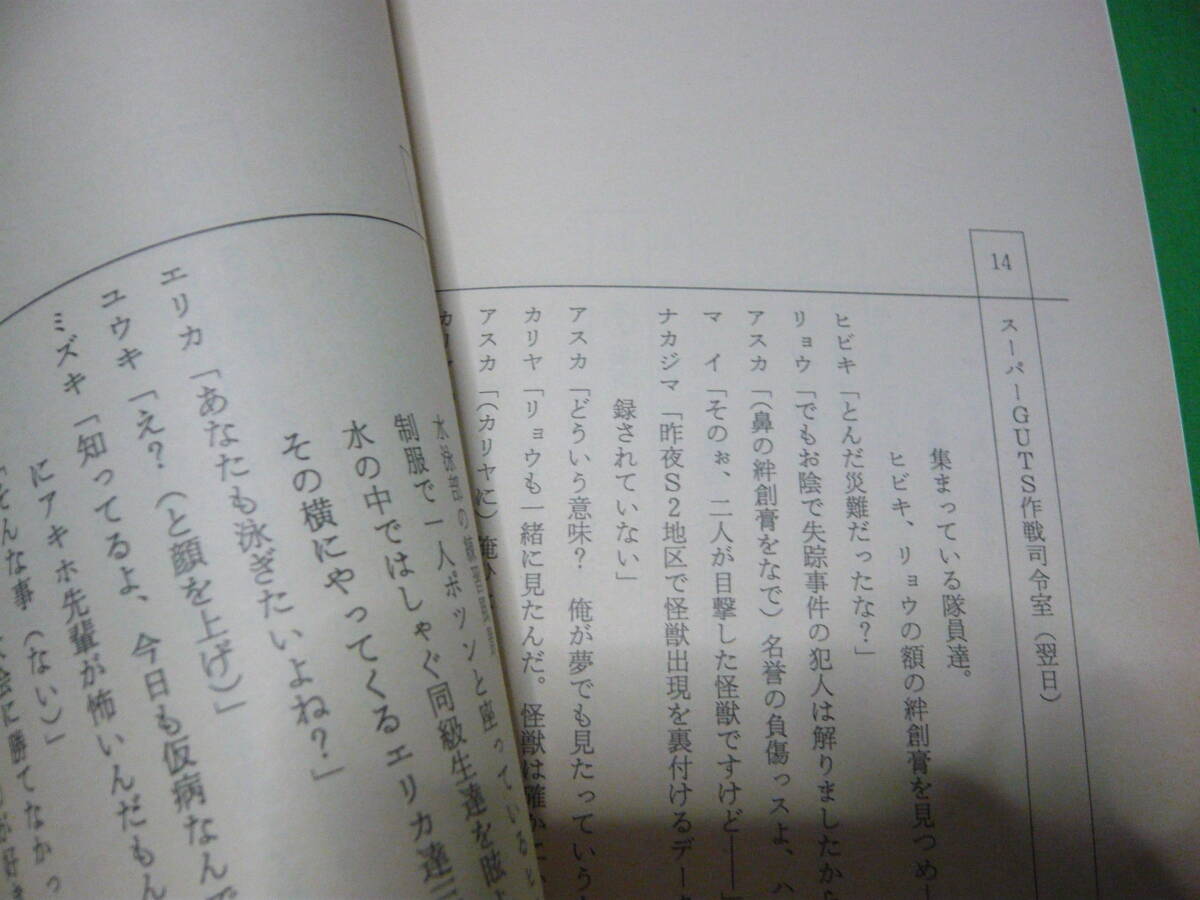 14
スーパーGUTS作戦司令室（翌日）
集まっている隊員達。
ヒビキ、リョウの額の絆創膏を見つめ
ヒビキ「とんだ災難だったな？」
リョウ「でもお陰で失踪事件の犯人は解りましたから
アスカ「（鼻の絆創膏をなで）名誉の負傷っスよ、ハ
マイ「そのぉ、二人が目撃した怪獣ですけど――」
ナカジマ「昨夜S2地区で怪獣出現を裏付けるデータ
録されていない」
アスカ「どういう意味？　俺が夢でも見たっていう
カリヤ「リョウも一緒に見たんだ。怪獣は確かに
アスカ「（カリヤに）俺
水泳部の
制服で一人ポツンと座っている
水の中ではしゃぐ同級生達を眩
その横にやってくるエリカ達三
エリカ「あなたも泳ぎたいよね？」
ユウキ「え？（と顔を上げ）」
ミズキ「知ってるよ、今日も仮病なんで
にアキホ先輩が怖いんだもん
「そんな事（ない）」
に勝てなかっ